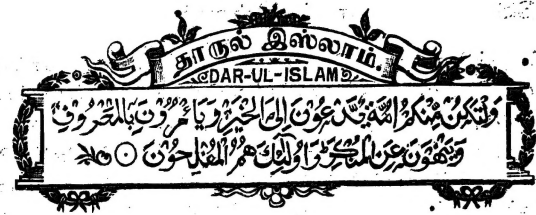 தாருல் இஸ்லாம்.
DAR-UL-ISLAM
وَلْتَكُنْ مِنْكُمْ اُمَّةٌ يَّدْعُوْنَ اِلَى الْخَيْرِ وَيَاْمُرُوْنَ بِالْمَعْرُوْفِ
وَيَنْهَوْنَ عَنِ الْمُنْكَرِ وَاُولٰٓئِكَ هُمُ الْمُفْلِحُوْنَ